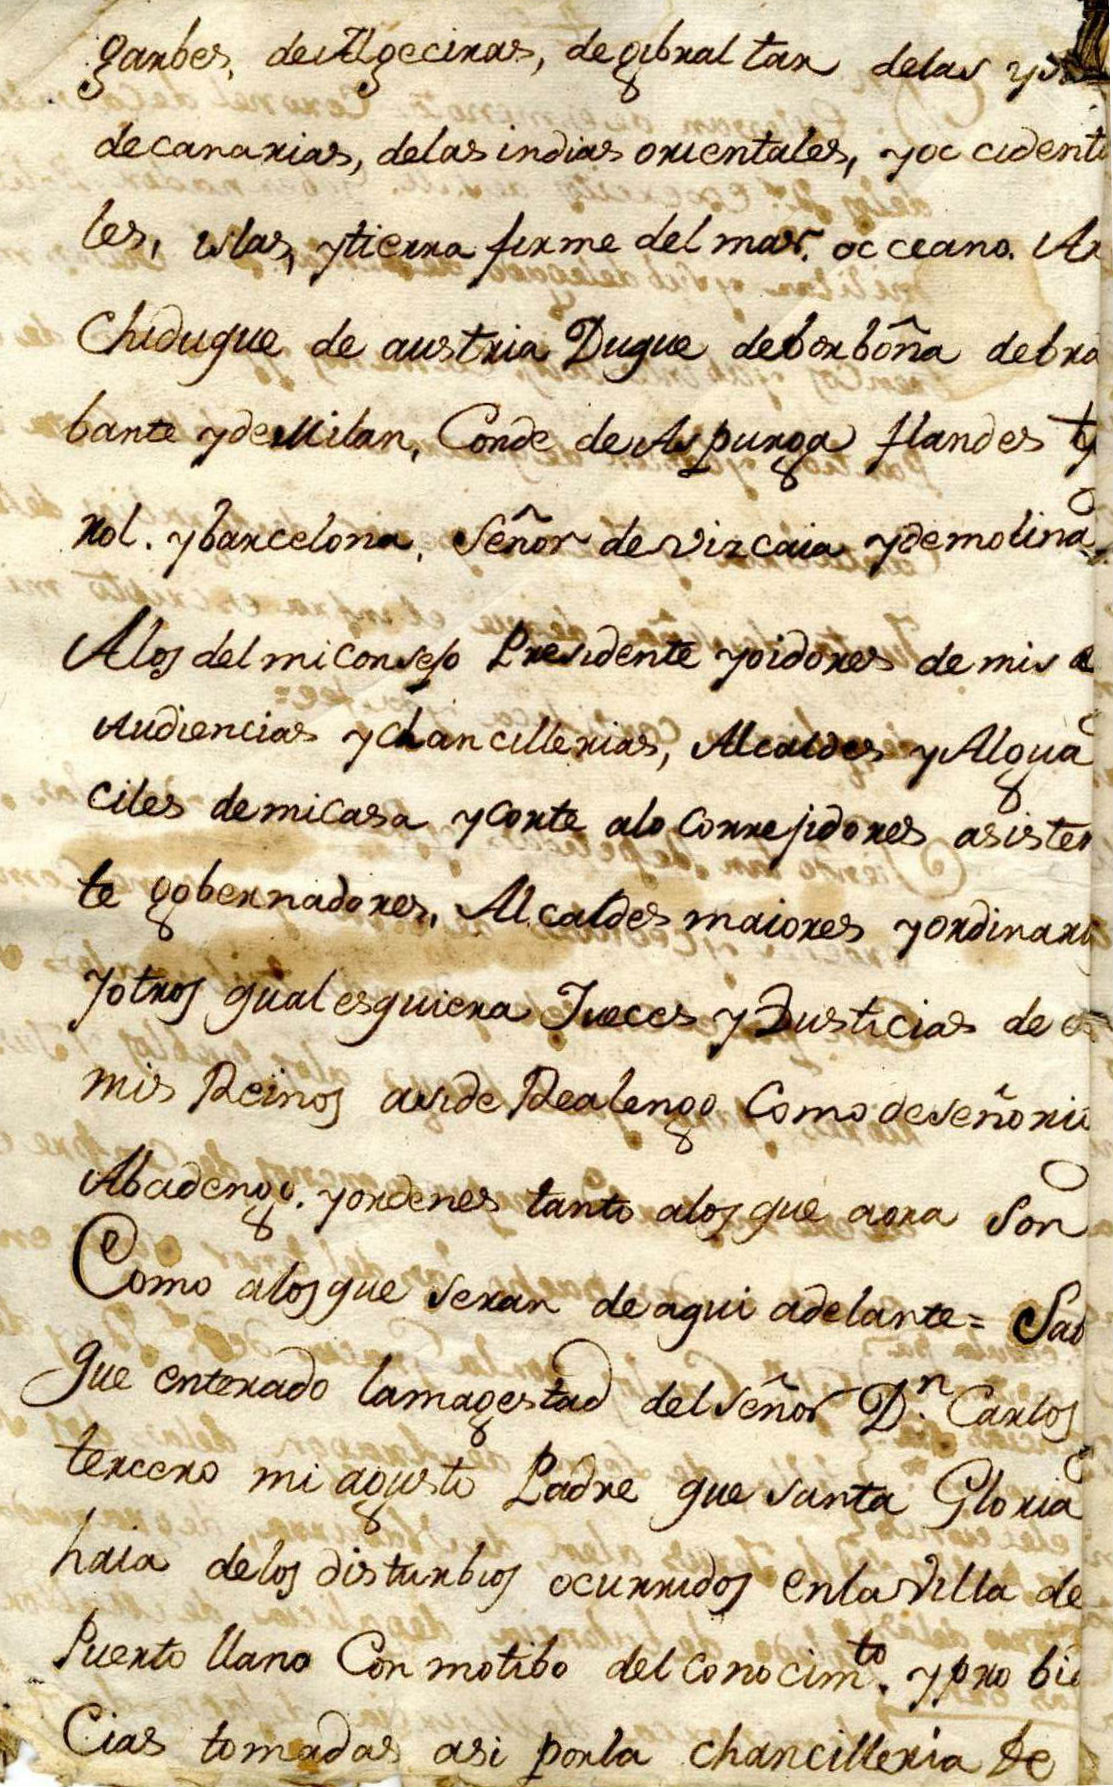 garbes, de Algeciras, de gibral tar delas ysl
decanarias, delas indias orientales, yoc cidenta
les, islas, ytierra firme del mar. occeano. Ar
Chiduque de austria Duque deborboña debra
bante ydeMilan, Conde de Aspurga flandes ty
rol. ybarcelona. Señor de vizcaia ydemolina
Alos del mi Consejo Presidente yoidores de mis a
Audiencias ychancillerias, Alcaldes yAlgua
ciles demicasa ycorte alo corregidores asisten
te gobernadores, Alcaldes maiores yordinario
yotros qualesquiera Jueces yJusticias de es
mis Reinos aside Realengo Como deseñorio
Abadengo. yordenes tanto alos que aora Son
Como alos que seran de aqui adelante= Sab
que enterado lamagestad del señor D.n Carlos
tercero mi agusto Padre que santa Gloria
haia delos disturbios ocurridos enla Villa de
Puerto llano Con motibo del conocim.to ypro bid
Cias tomadas asi porla chancilleria de